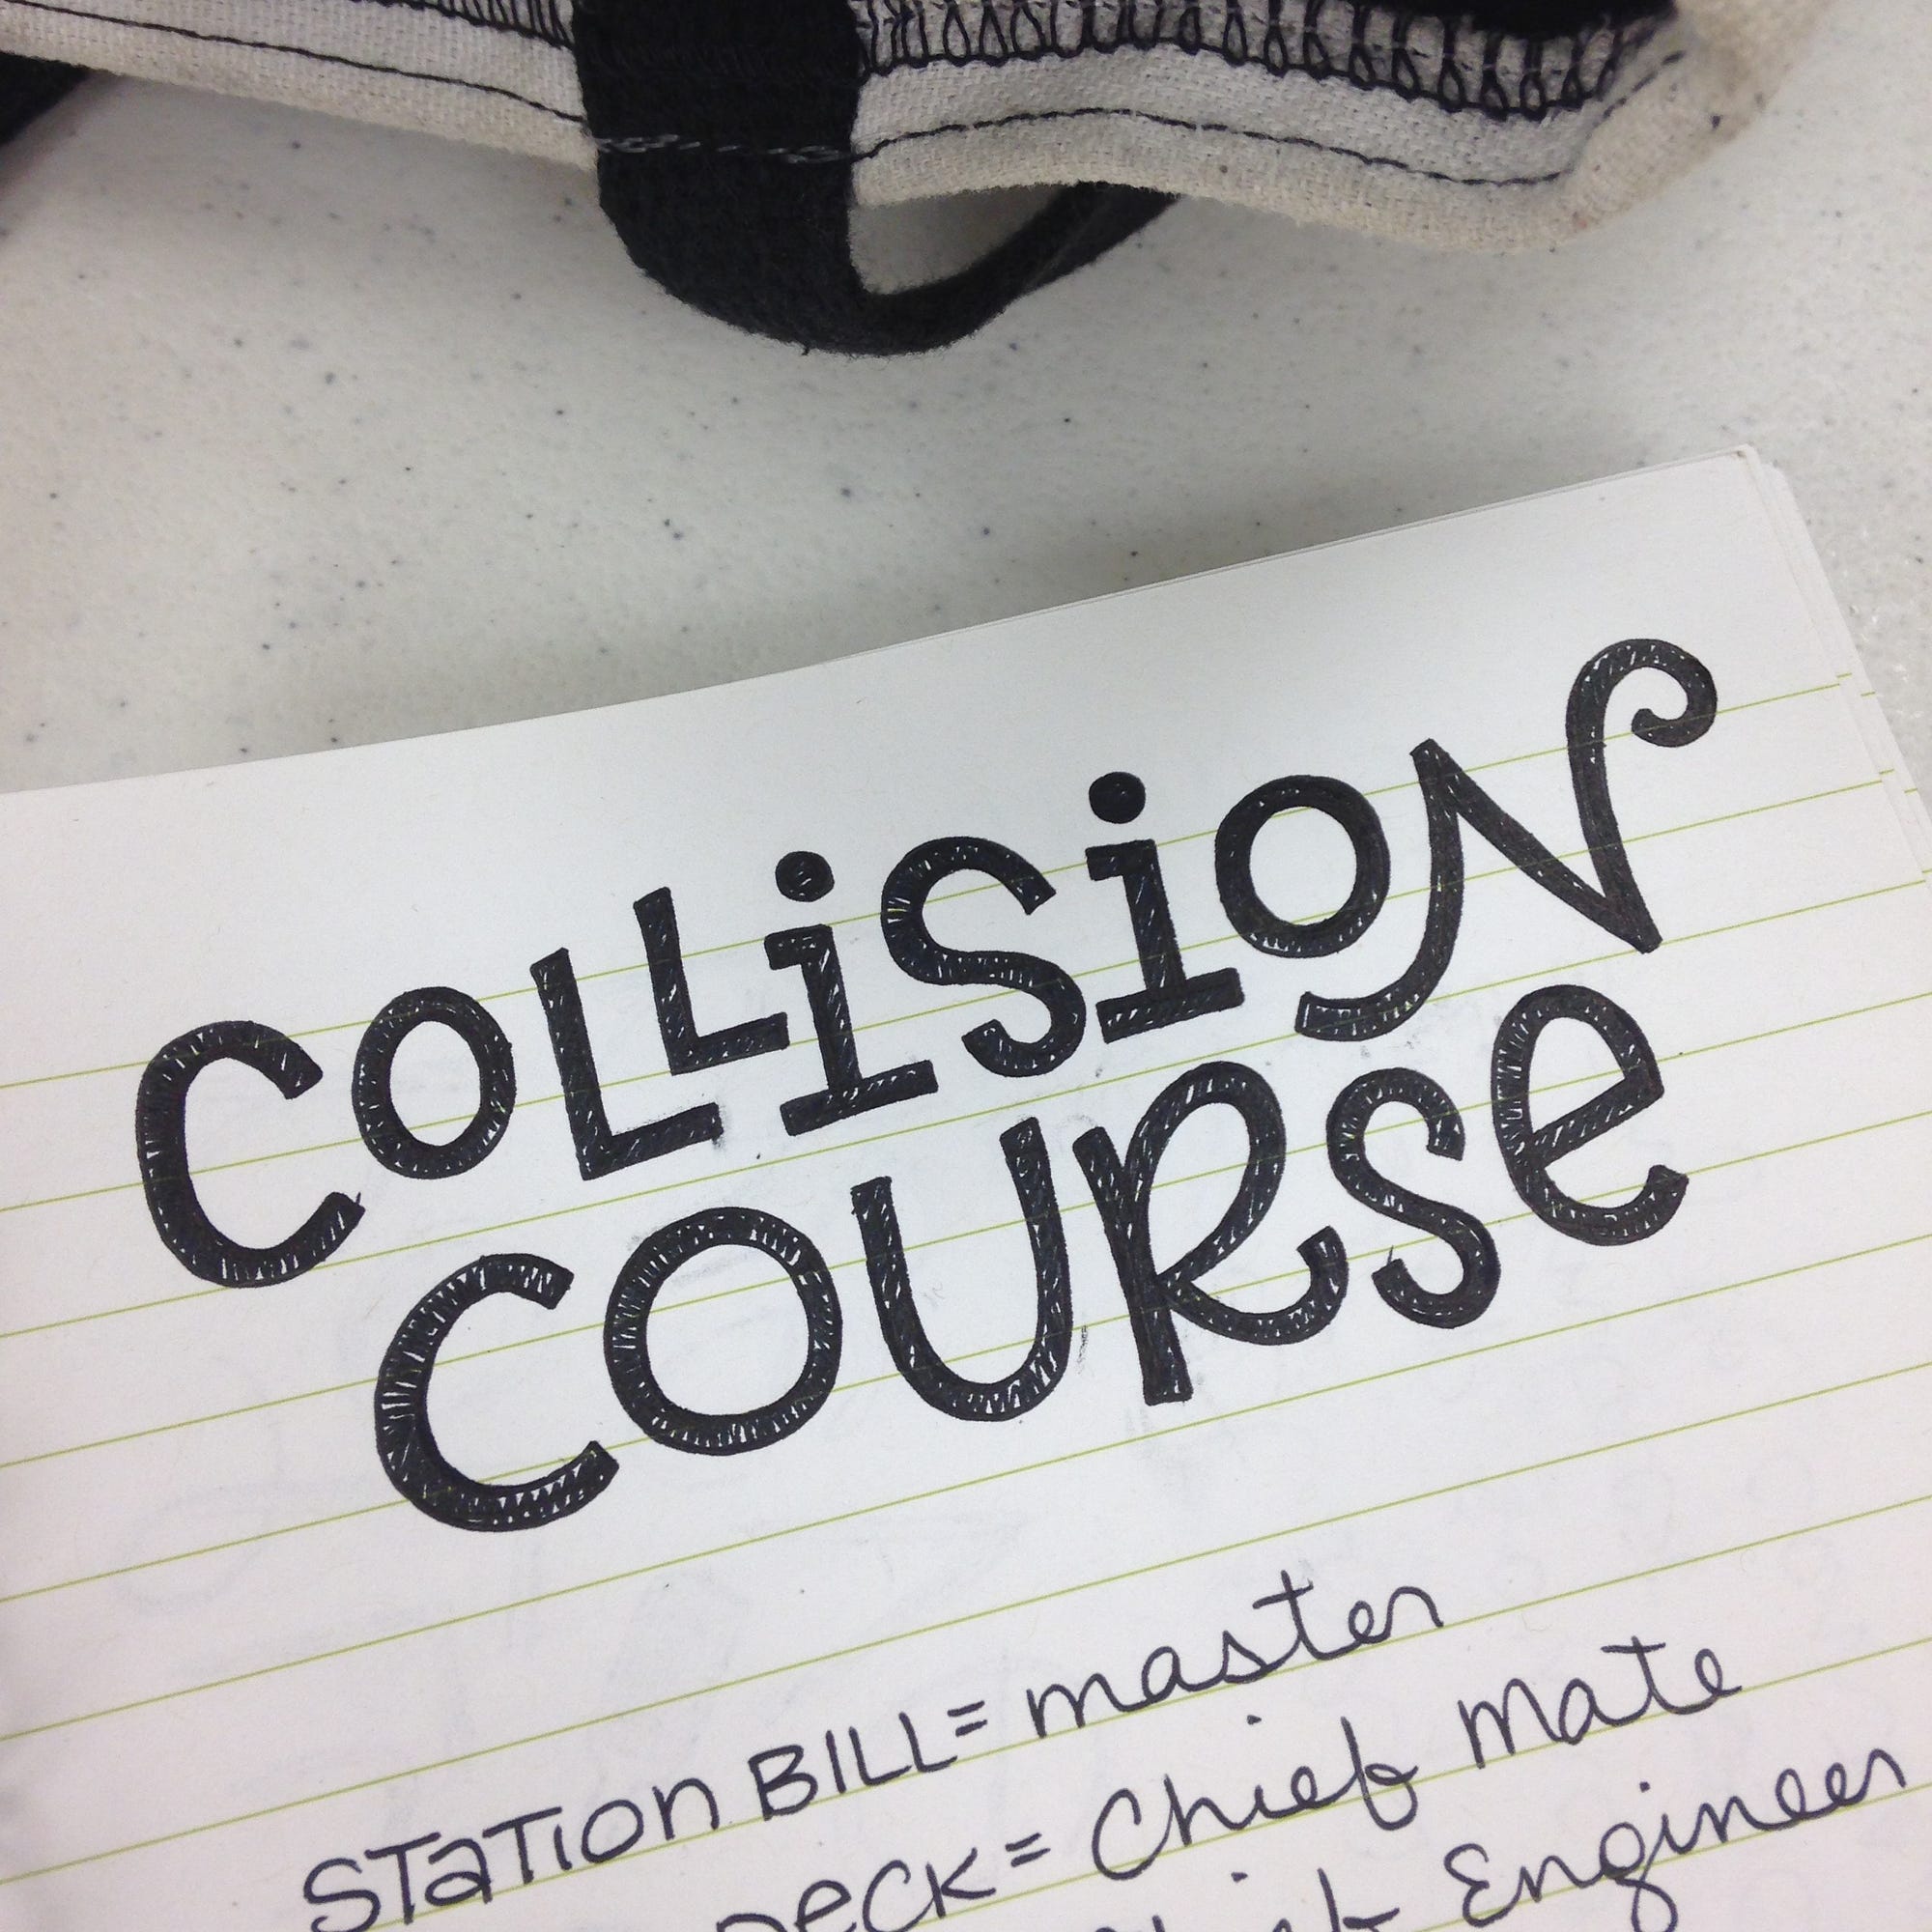 COLLiSiON
COURSe
STaTion BILL = master
Deck = Chief Mate
Engineer